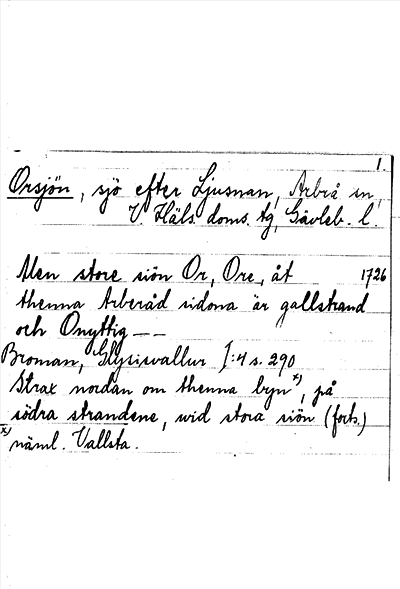 1.
Orsjön, sjö efter Ljusnan, Arbrå sn,
V. Häls. doms. tg, Gävleb. l.
Men store siön Or, Ore, åt 1726
thenna Arberåd sidona är gallstrand
och Onyttig — —
Broman, Glysisvallur I:4 s. 290
Strax nordan om thenna byn x), på
södra strandene, wid stora siön (forts.)
x) näml. Vallsta.